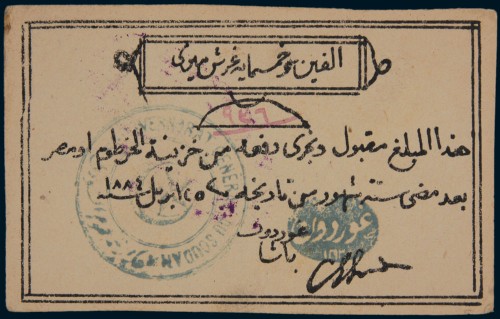 الفين و خمسماية غرش ميرى
هذا المبلغ مقبول ويجرى دفعه من خزينة الخرطوم او مصر
بعد مضى ستة شهور من تاريخه ٢٥ ابريل ١٨٨٤ سنة
غوردون
باشا
GENERAL DU SOUDAN